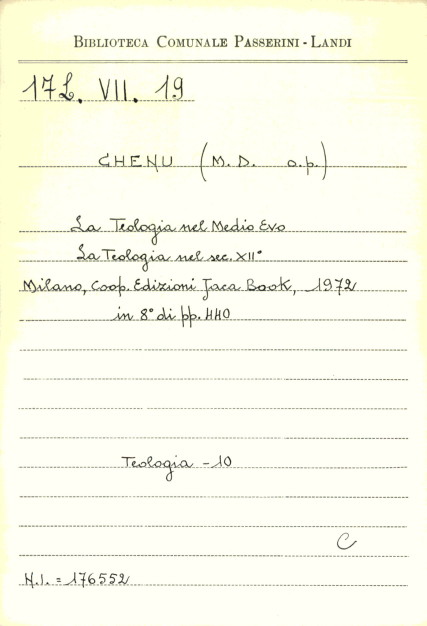 BIBLIOTECA COMUNALE PASSERINI - LANDI
17L. VII. 19
CHENU (M. D. o.p.)
La Teologia nel Medio Evo
La Teologia nel sec. XII°
Milano, Coop. Edizioni Jaca Book, 1972
in 8° di pp. 440
Teologia - 10
C
N.I. = 176552